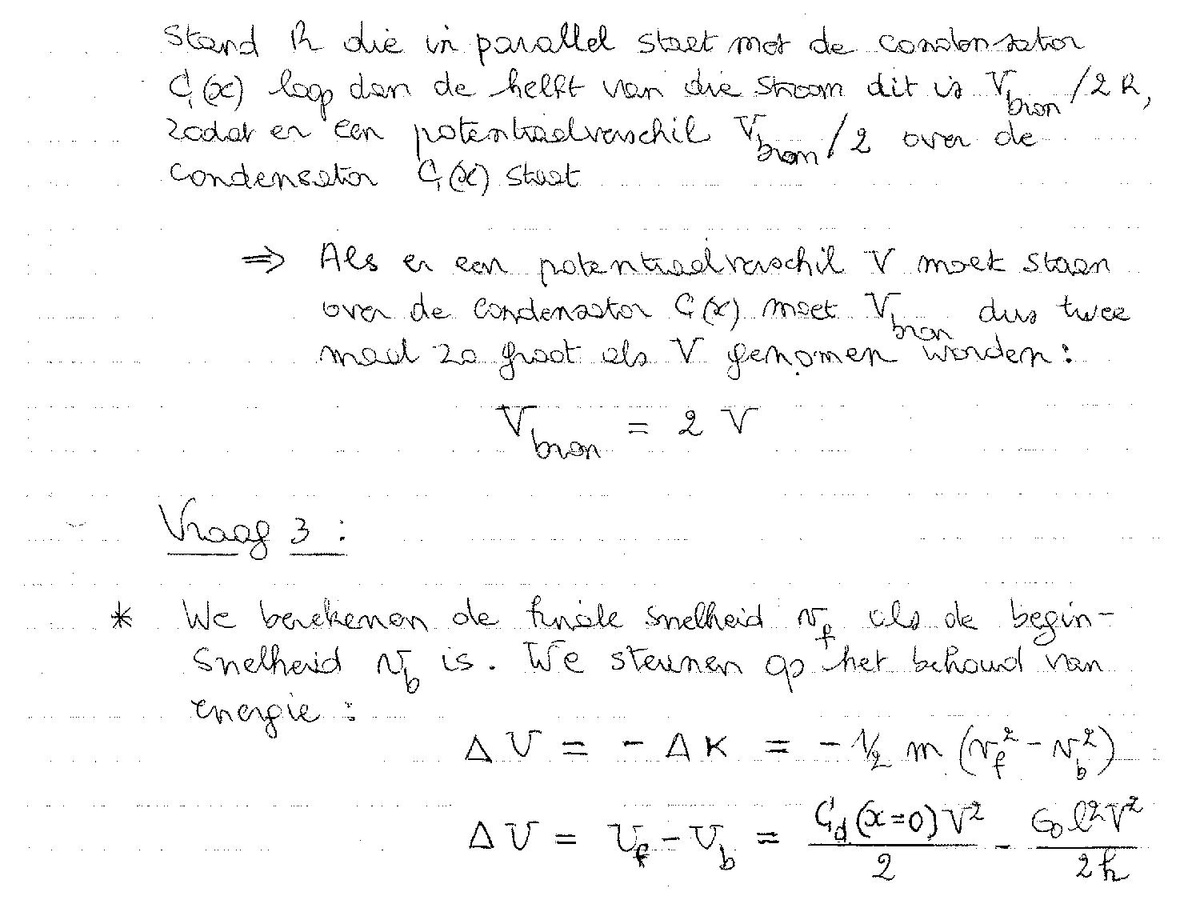 stand R die in parallel staat met de condensator
C(x) loop dan de helft van die stroom dit is V_bron/2R,
zodat er een potentiaalverschil V_bron/2 over de
condensator C(x) staat
⇒ Als er een potentiaalverschil V moet staan
over de condensator C(x) moet V_bron dus twee
maal zo groot als V genomen worden:
V_bron = 2 V
Vraag 3 :
* We berekenen de finale snelheid v_f als de begin-
snelheid v_b is. We steunen op het behoud van
energie :
ΔU = - ΔK = - 1/2 m (v_f² - v_b²)
ΔU = U_f - U_b = C_d(x=0)V²/2 - ε₀l²V²/2h